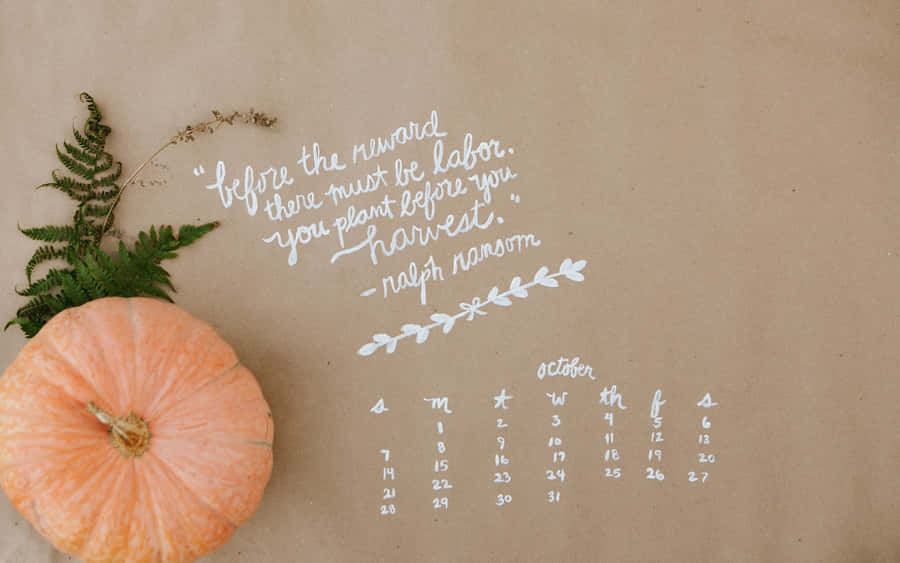 "before the reward
there must be labor.
you plant before you
harvest."
- ralph ransom
october
s m t w th f s
1 2 3 4 5 6
7 8 9 10 11 12 13
14 15 16 17 18 19 20
21 22 23 24 25 26 27
28 29 30 31